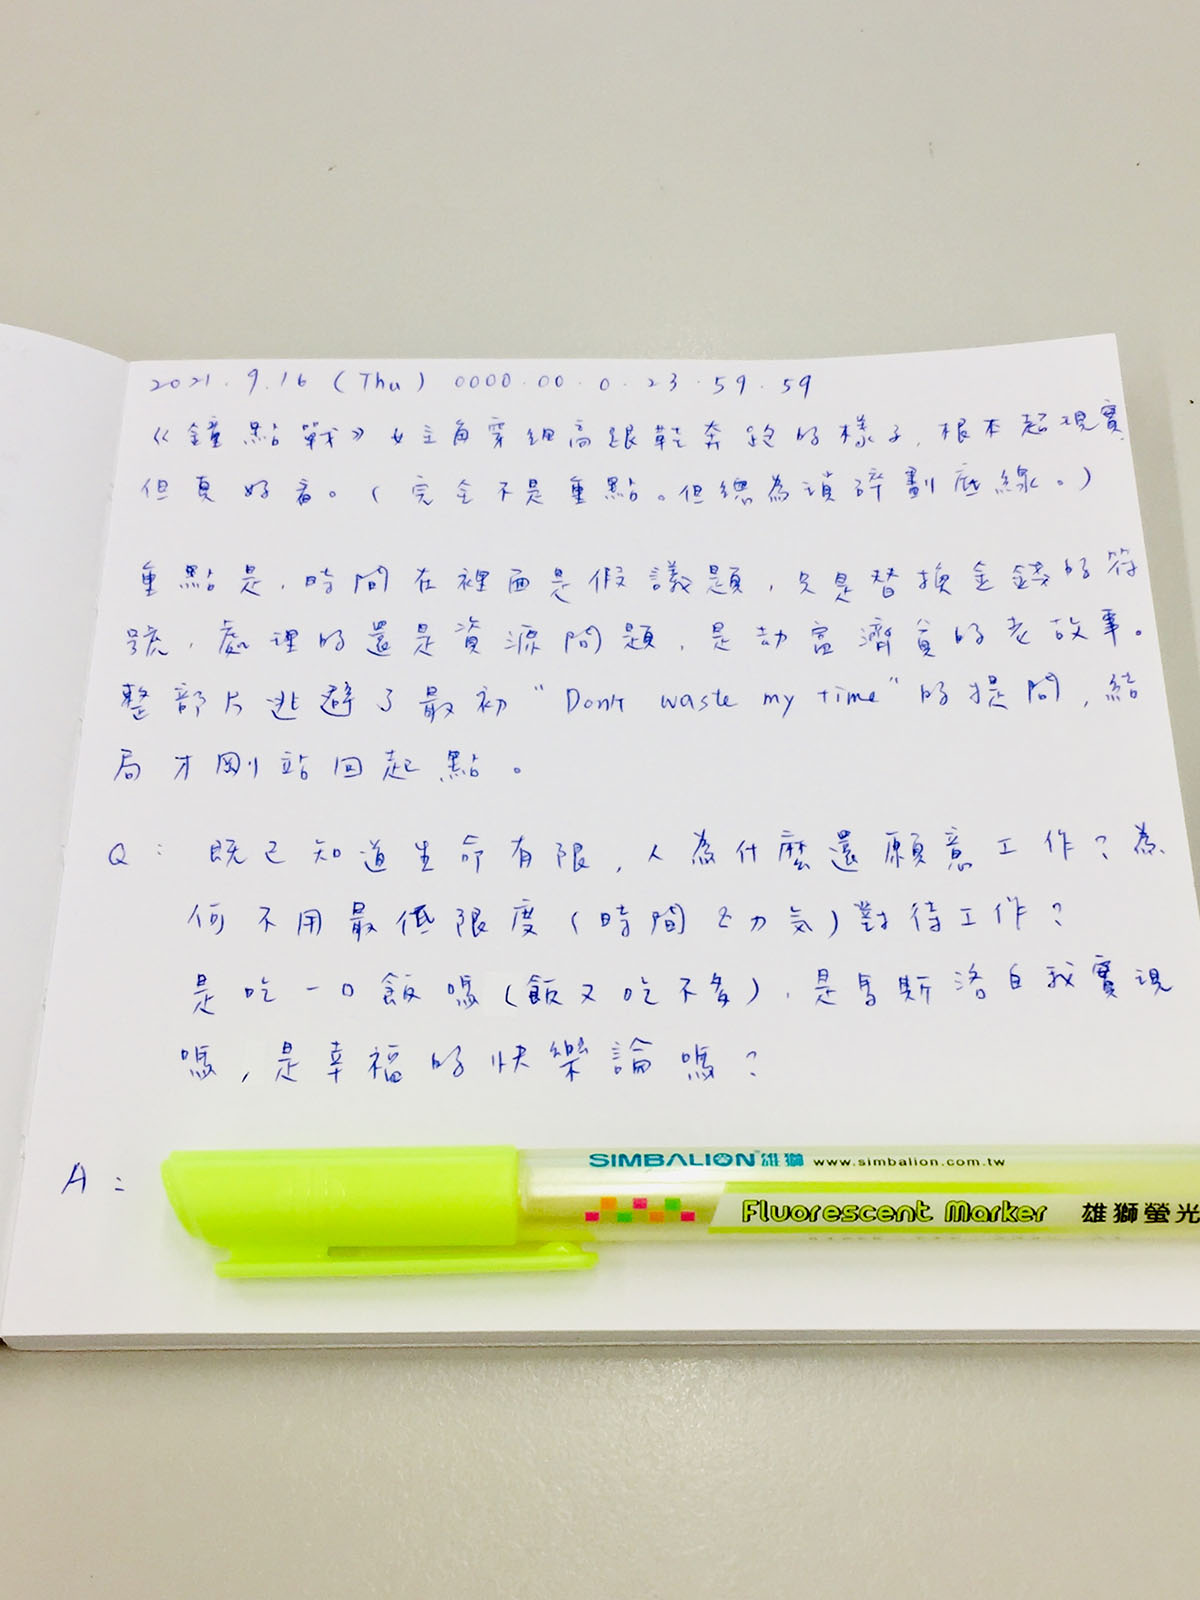 2021.9.16 (Thu) 0000.00.0.23.59.59
《鐘點戰》女主角穿細高跟鞋奔跑的樣子,根本超現實
但真好看。(完全不是重點。但總為瑣碎劃底線。)
重點是,時間在裡面是假議題,只是替換金錢的符
號,處理的還是資源問題,是劫富濟貧的老故事。
整部片逃避了最初"Don't waste my time"的提問,結
局才剛站回起點。
Q:既已知道生命有限,人為什麼還願意工作?為
何不用最低限度(時間&力氣)對待工作?
是吃一口飯嗎(飯又吃不多),是馬斯洛自我實現
嗎,是幸福的快樂論嗎?
A:
SIMBALION 雄獅 www.simbalion.com.tw
Fluorescent Marker 雄獅螢光